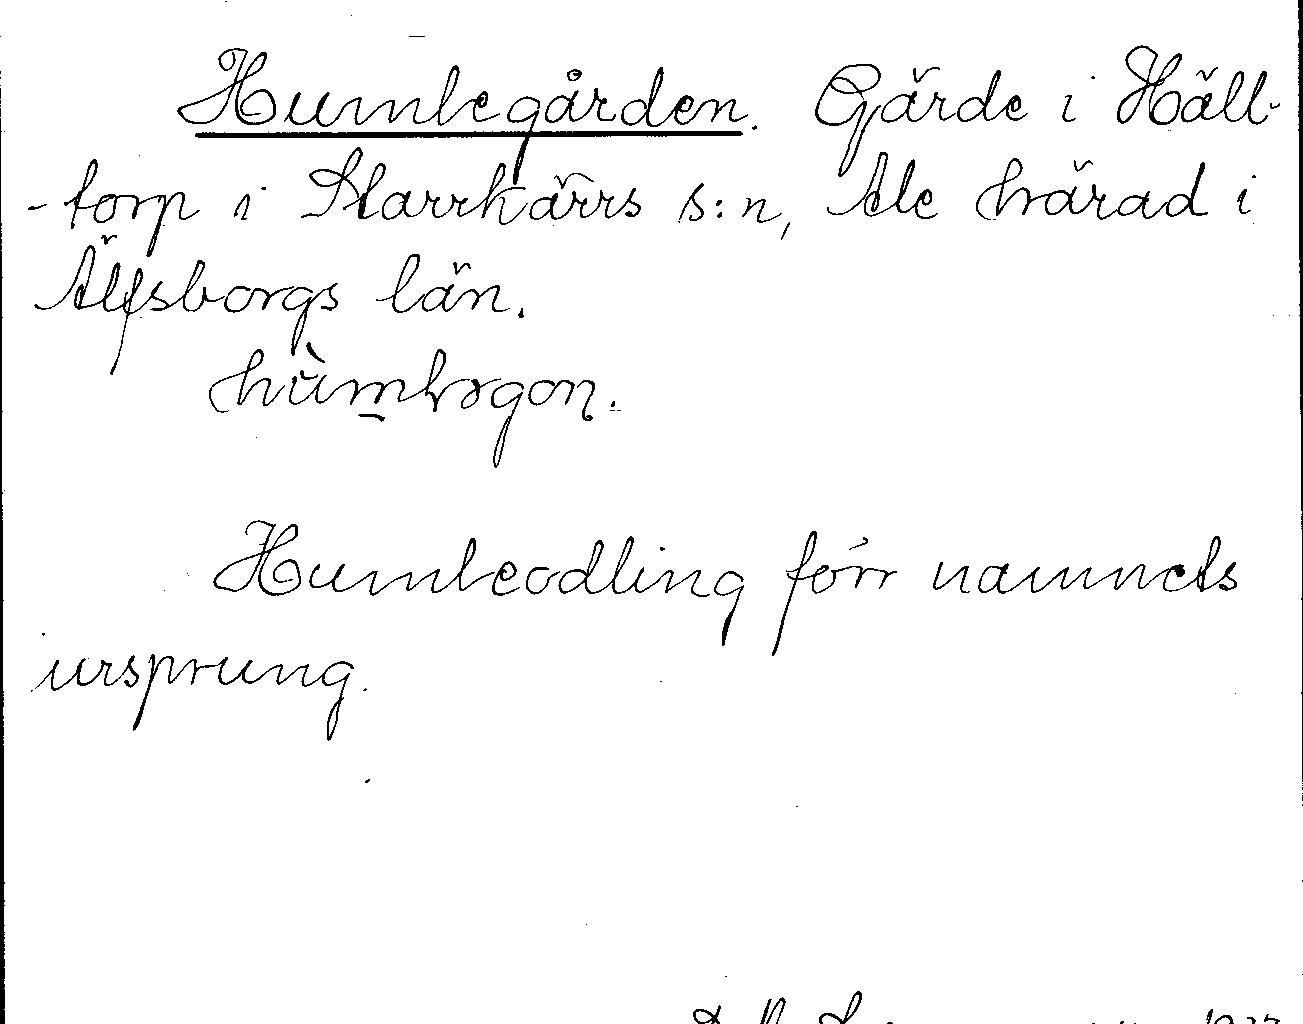 Humlegården. Gärde i Häll-
-torp i Starrkärrs s:n, Ale härad i
Älfsborgs län.
Humleodling förr namnets
ursprung.